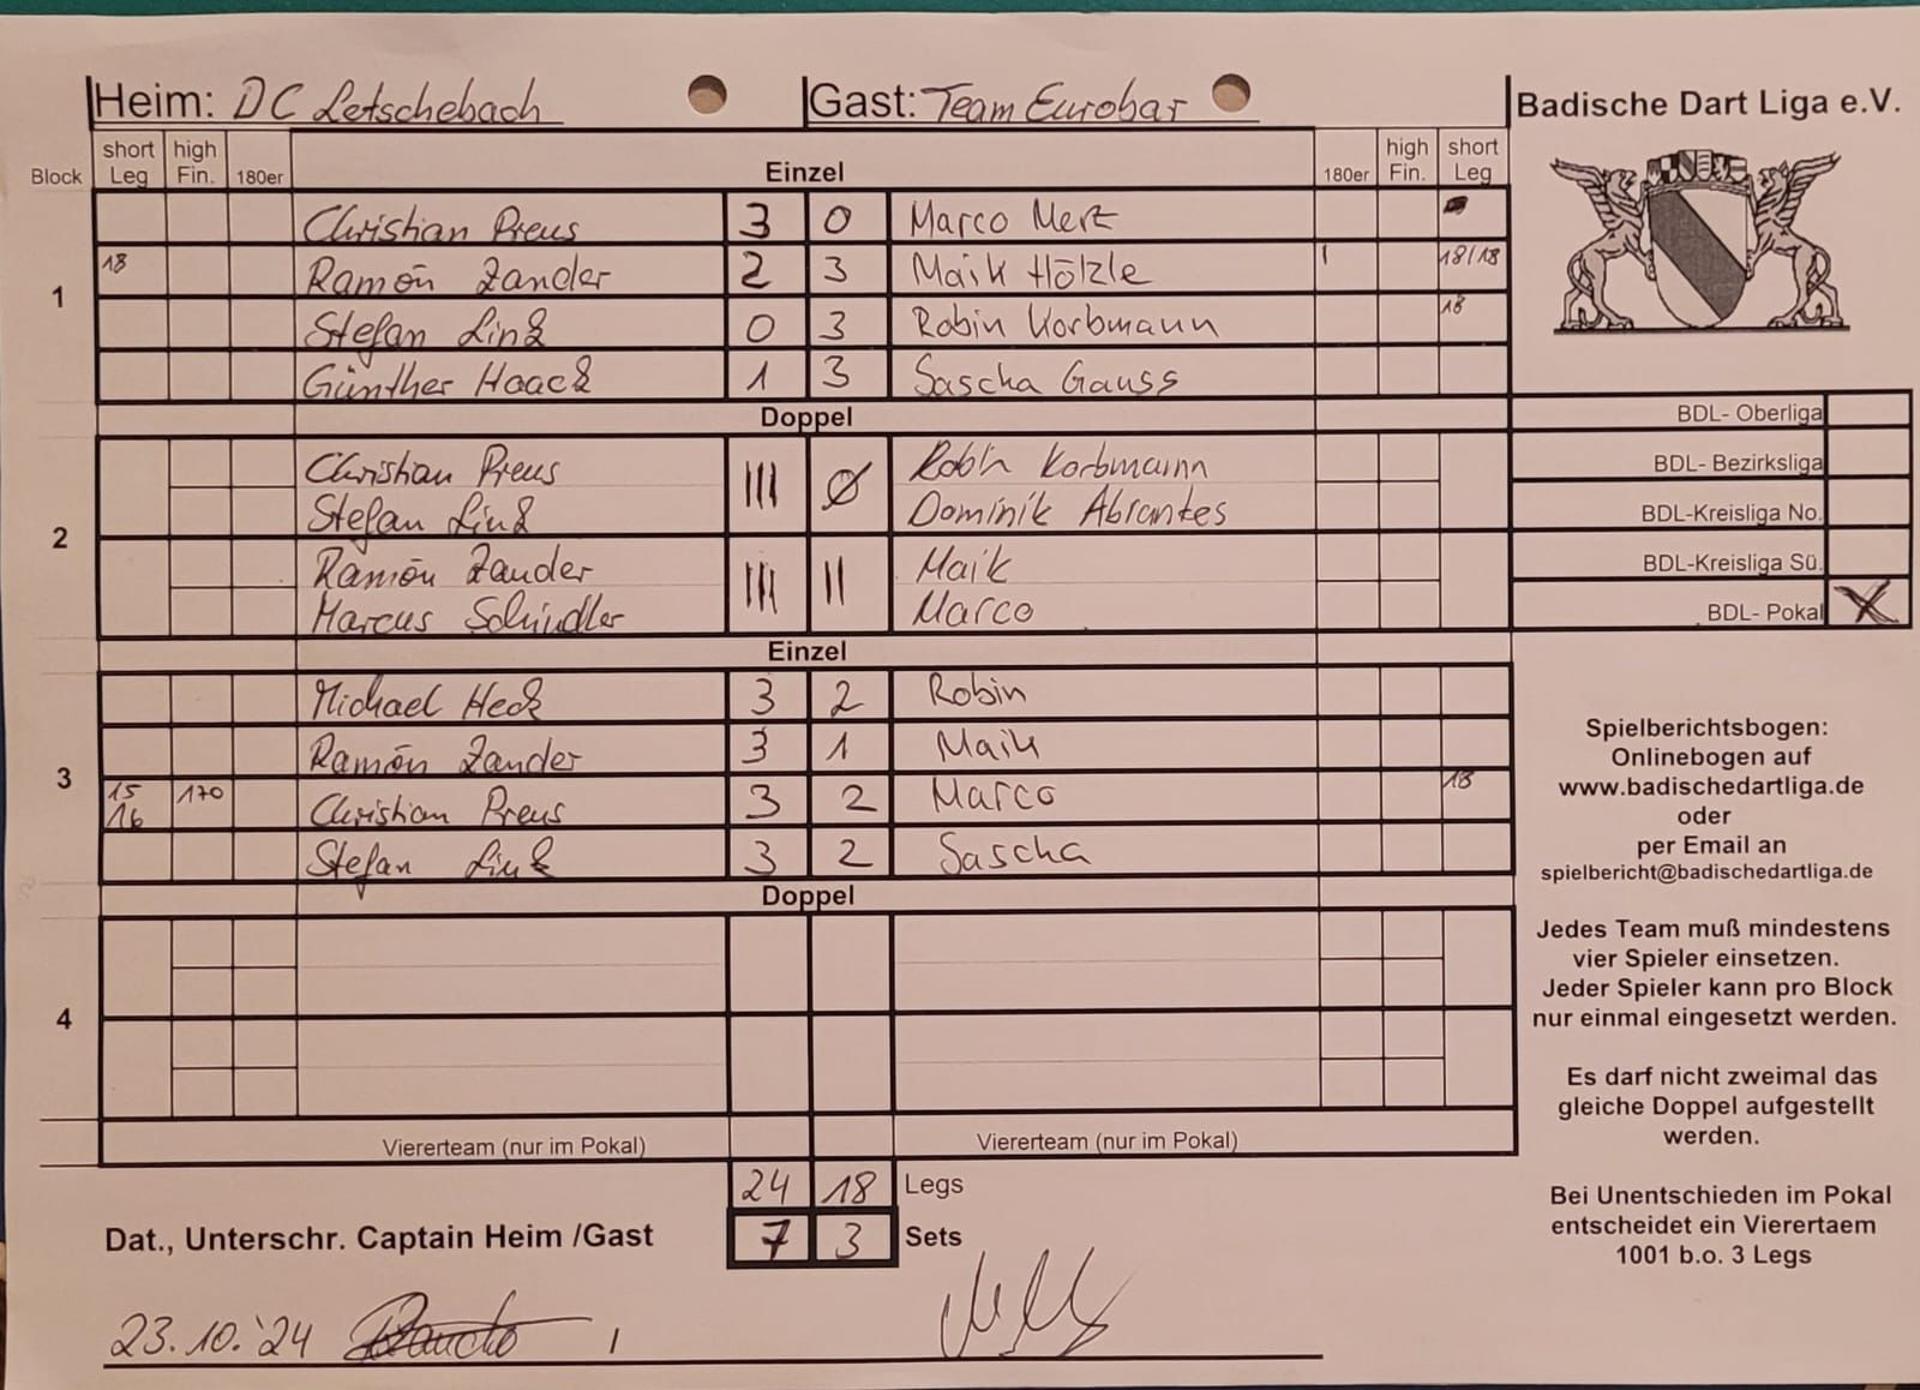 Heim: DC Letschebach Gast: Team Eurobar Badische Dart Liga e.V.
Block short Leg high Fin. 180er Einzel 180er high Fin. short Leg
1
Christian Preus 3 0 Marco Merz
18 Ramón Zander 2 3 Maik Hölzle I 18/18
Stefan Link 0 3 Robin Korbmann 18
Günther Haack 1 3 Sascha Gauss
Doppel
2
Christian Preus III Ø Robin Korbmann
Stefan Link Dominik Abrantes
Ramón Zander III II Maik
Marcus Schindler Marco
BDL- Oberliga
BDL- Bezirksliga
BDL-Kreisliga No.
BDL-Kreisliga Sü.
BDL- Pokal X
Einzel
3
Michael Heck 3 2 Robin
Ramón Zander 3 1 Maik
15 16 170 Christian Preus 3 2 Marco 18
Stefan Link 3 2 Sascha
Doppel
4
Viererteam (nur im Pokal) Viererteam (nur im Pokal)
24 18 Legs
7 3 Sets
Dat., Unterschr. Captain Heim /Gast
23.10.'24 /
Spielberichtsbogen:
Onlinebogen auf
www.badischedartliga.de
oder
per Email an
spielbericht@badischedartliga.de
Jedes Team muß mindestens
vier Spieler einsetzen.
Jeder Spieler kann pro Block
nur einmal eingesetzt werden.
Es darf nicht zweimal das
gleiche Doppel aufgestellt
werden.
Bei Unentschieden im Pokal
entscheidet ein Vierertaem
1001 b.o. 3 Legs